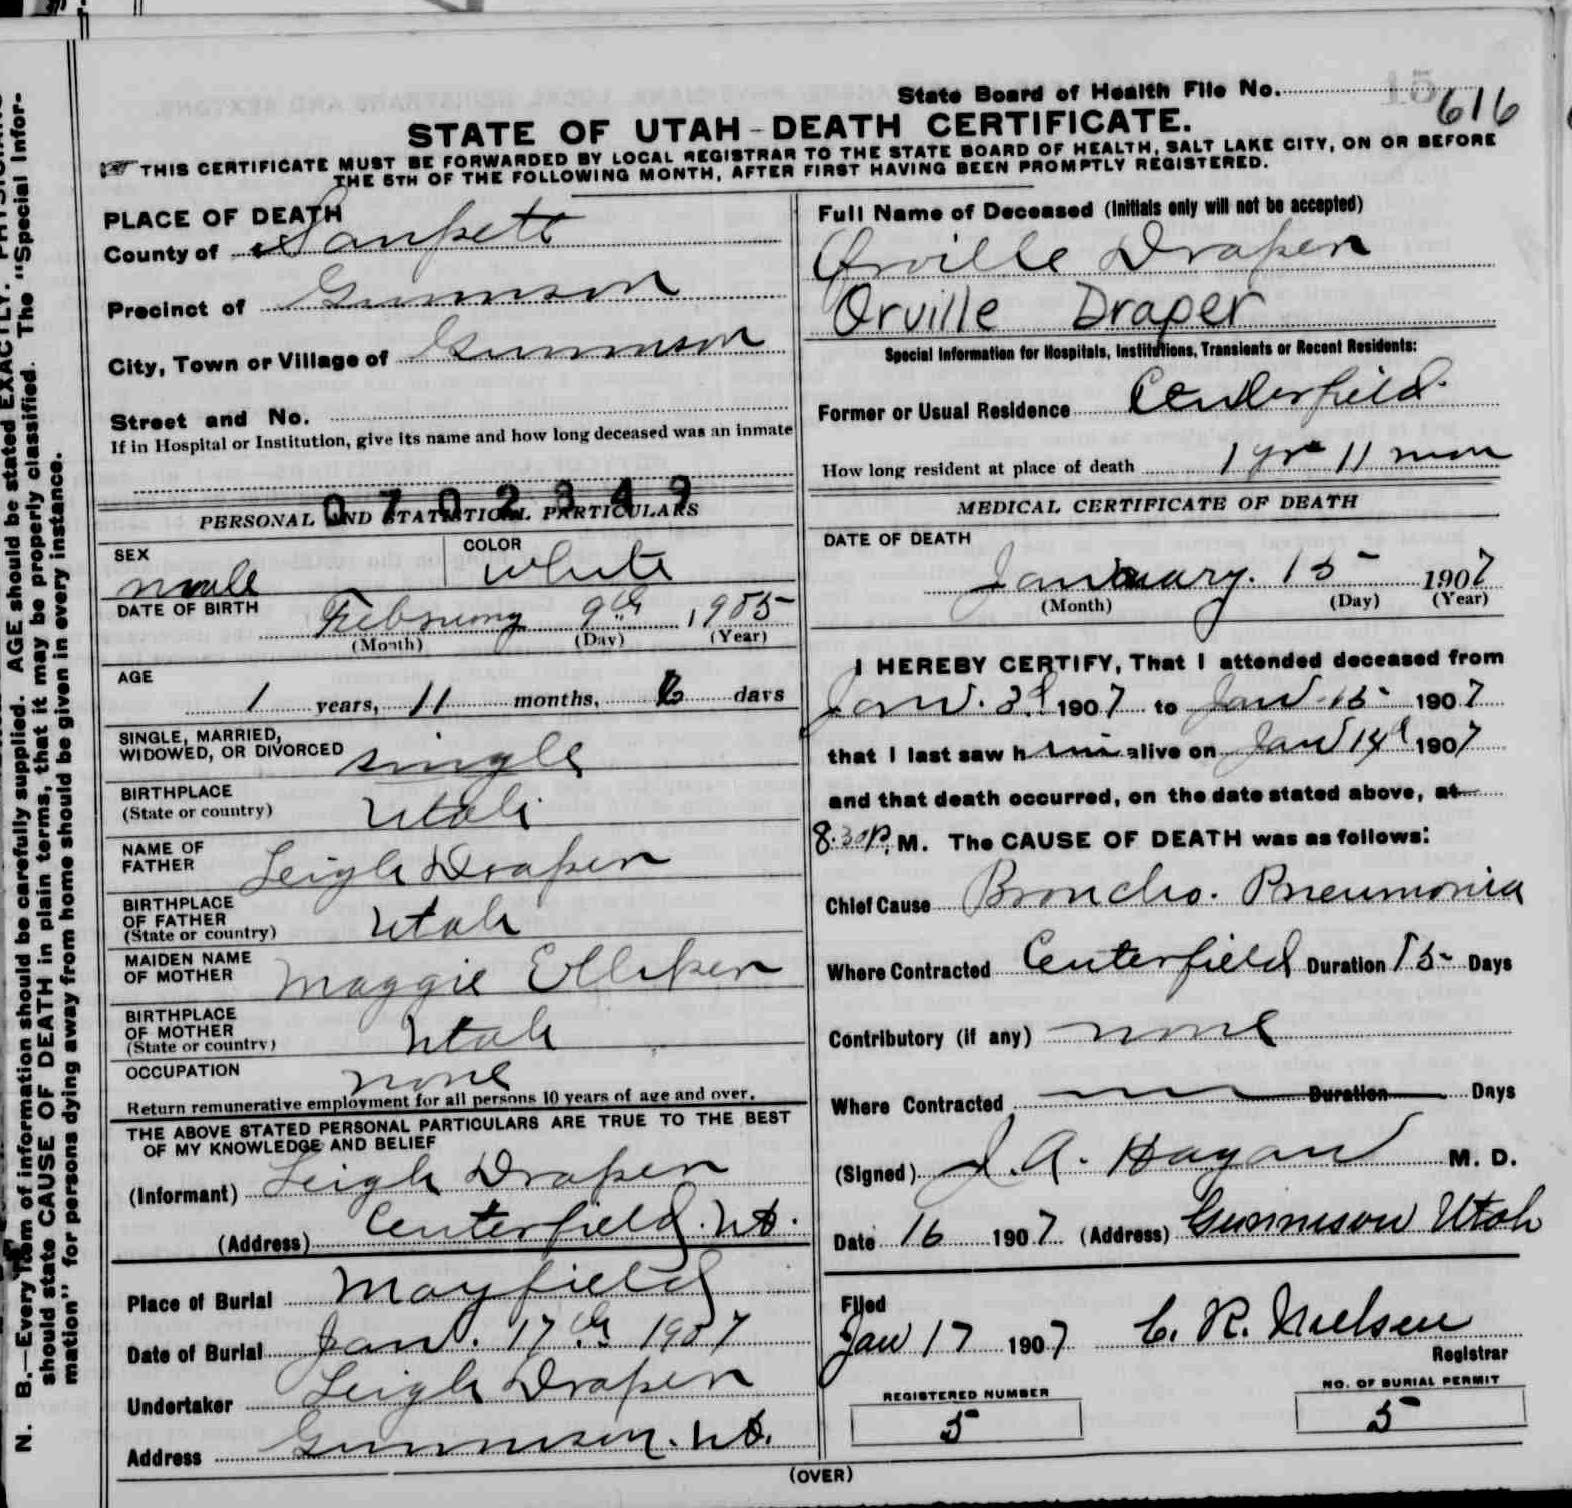 State Board of Health File No. 616
15
STATE OF UTAH-DEATH CERTIFICATE.
THIS CERTIFICATE MUST BE FORWARDED BY LOCAL REGISTRAR TO THE STATE BOARD OF HEALTH, SALT LAKE CITY, ON OR BEFORE
THE 5TH OF THE FOLLOWING MONTH, AFTER FIRST HAVING BEEN PROMPTLY REGISTERED.
PLACE OF DEATH
County of Sanpete
Precinct of Gunnison
City, Town or Village of Gunnison
Street and No.
If in Hospital or Institution, give its name and how long deceased was an inmate
0702349
PERSONAL AND STATISTICAL PARTICULARS
SEX male COLOR white
DATE OF BIRTH February 9th 1905
(Month) (Day) (Year)
AGE
1 years, 11 months, 6 days
SINGLE, MARRIED,
WIDOWED, OR DIVORCED single
BIRTHPLACE
(State or country) Utah
NAME OF
FATHER Leigh Draper
BIRTHPLACE
OF FATHER
(State or country) Utah
MAIDEN NAME
OF MOTHER Maggie
BIRTHPLACE
OF MOTHER
(State or country) Utah
OCCUPATION none
Return remunerative employment for all persons 10 years of age and over.
THE ABOVE STATED PERSONAL PARTICULARS ARE TRUE TO THE BEST
OF MY KNOWLEDGE AND BELIEF
(Informant) Leigh Draper
(Address) Centerfield. Ut.
Place of Burial Mayfield
Date of Burial Jan. 17th 1907
Undertaker Leigh Draper
Address Gunnison. Ut.
Full Name of Deceased (Initials only will not be accepted)
Orville Draper
Orville Draper
Special Information for Hospitals, Institutions, Transients or Recent Residents:
Former or Usual Residence Centerfield.
How long resident at place of death 1 yr 11 mon
MEDICAL CERTIFICATE OF DEATH
DATE OF DEATH
January. 15 1907
(Month) (Day) (Year)
I HEREBY CERTIFY, That I attended deceased from
Jan. 3d 1907 to Jan 15 1907
that I last saw him alive on Jan 14th 1907
and that death occurred, on the date stated above, at
8.30 P. M. The CAUSE OF DEATH was as follows:
Chief Cause Broncho. Pneumonia
Where Contracted Centerfield Duration 15 Days
Contributory (if any) none
Where Contracted Duration Days
(Signed) J. A. Hagan M. D.
Date 16 1907 (Address) Gunnison Utah
Filed
Jan 17 1907 C. R. Nielsen
Registrar
REGISTERED NUMBER
5
NO. OF BURIAL PERMIT
5
(OVER)
N. B.—Every item of information should be carefully supplied. AGE should be stated EXACTLY.
should state CAUSE OF DEATH in plain terms, that it may be properly classified. The "Special Infor-
mation" for persons dying away from home should be given in every instance.